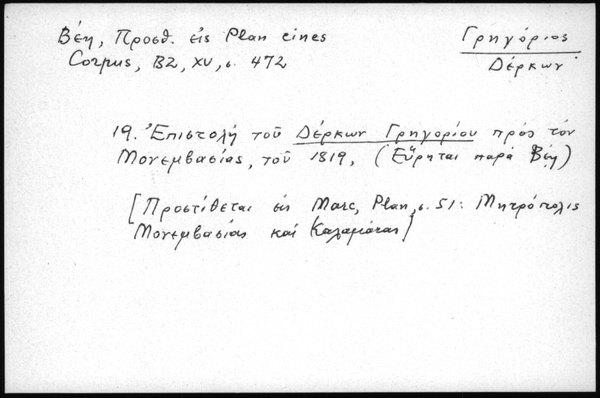 Βέη, Προσθ. εἰς Plan eines
Corpus, BZ, XV, σ. 472
Γρηγόριος
Δέρκων
19. Ἐπιστολὴ τοῦ Δέρκων Γρηγορίου πρὸς τὸν
Μονεμβασίας, τοῦ 1819, (Εὕρηται παρὰ Βέῃ)
[Προστίθεται εἰς Marc, Plan, σ. 51: Μητρόπολις
Μονεμβασίας καὶ Καλαμάτας]